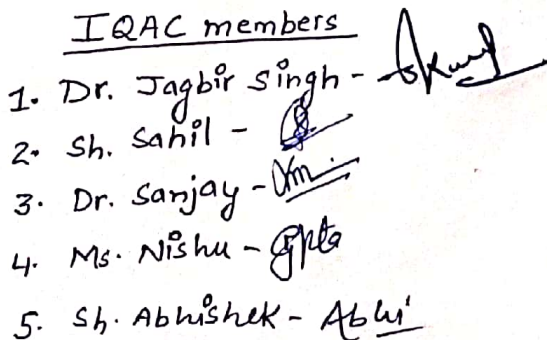 IQAC members
1. Dr. Jagbir Singh -
2. Sh. Sahil -
3. Dr. Sanjay -
4. Ms. Nishu - Gupta
5. Sh. Abhishek - Abhi